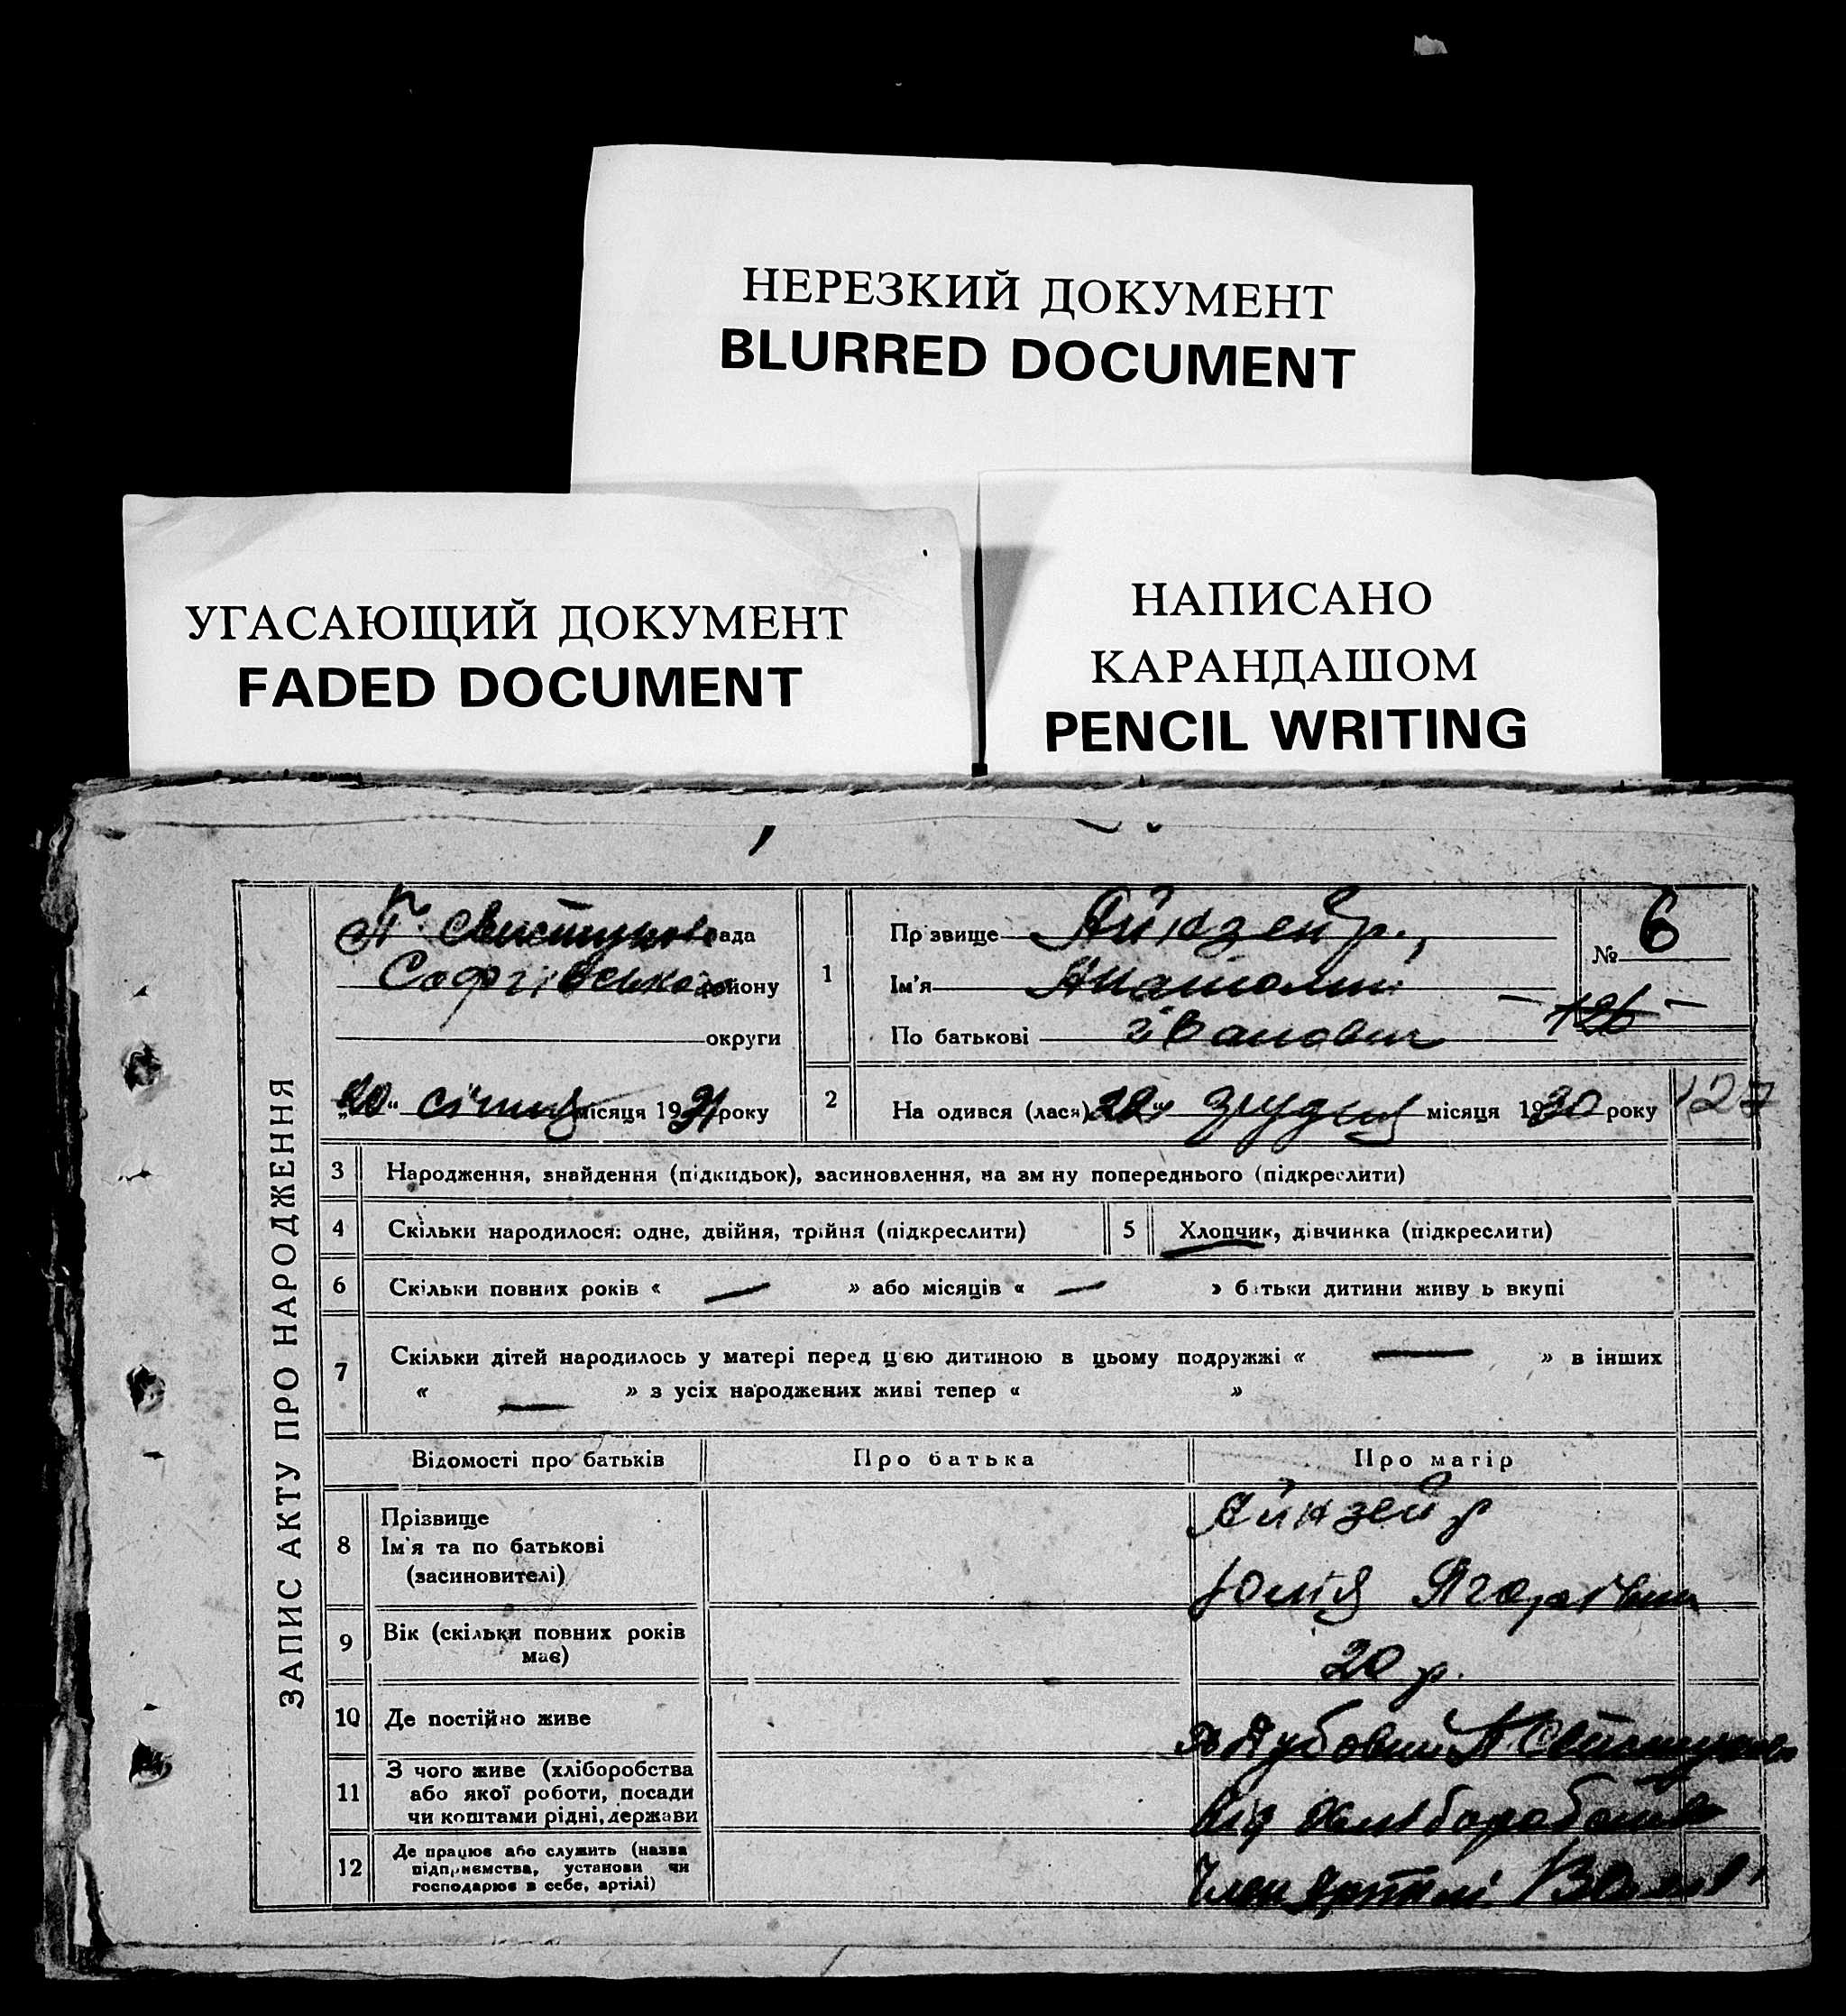 НЕРЕЗКИЙ ДОКУМЕНТ
BLURRED DOCUMENT
УГАСАЮЩИЙ ДОКУМЕНТ
FADED DOCUMENT
НАПИСАНО
КАРАНДАШОМ
PENCIL WRITING
ЗАПИС АКТУ ПРО НАРОДЖЕННЯ
рада
Софіївською району
округи
„20“ січня місяця 1931 року
1
Пр звище Айнзейр.,
Ім'я Анатолий
По батькові Іванович
№ 6
126
127
2
На одився (лася) „22“ грудня місяця 1930 року
3 Народження, знайдення (підкидьок), засиновлення, на зм ну попереднього (підкреслити)
4 Скільки народилося: одне, двійня, трійня (підкреслити)
5 Хлопчик, дівчинка (підкреслити)
6 Скільки повних років « — » або місяців « — » б тьки дитини живу ь вкупі
7 Скільки дітей народилось у матері перед цією дитиною в цьому подружжі « — » в інших
« — » з усіх народжених живі тепер « »
Відомості про батьків
Про батька
Про матір
8 Прізвище
Ім'я та по батькові
(засиновителі)
Айнзейр
Юлія
9 Вік (скільки повних років
має)
20 р.
10 Де постійно живе
11 З чого живе (хліборобства
або якої роботи, посади
чи коштами рідні, держави
від хліборобства
12 Де працює або служить (назва
підприємства, установи чи
господарює в себе, артілі)
Член Артілі